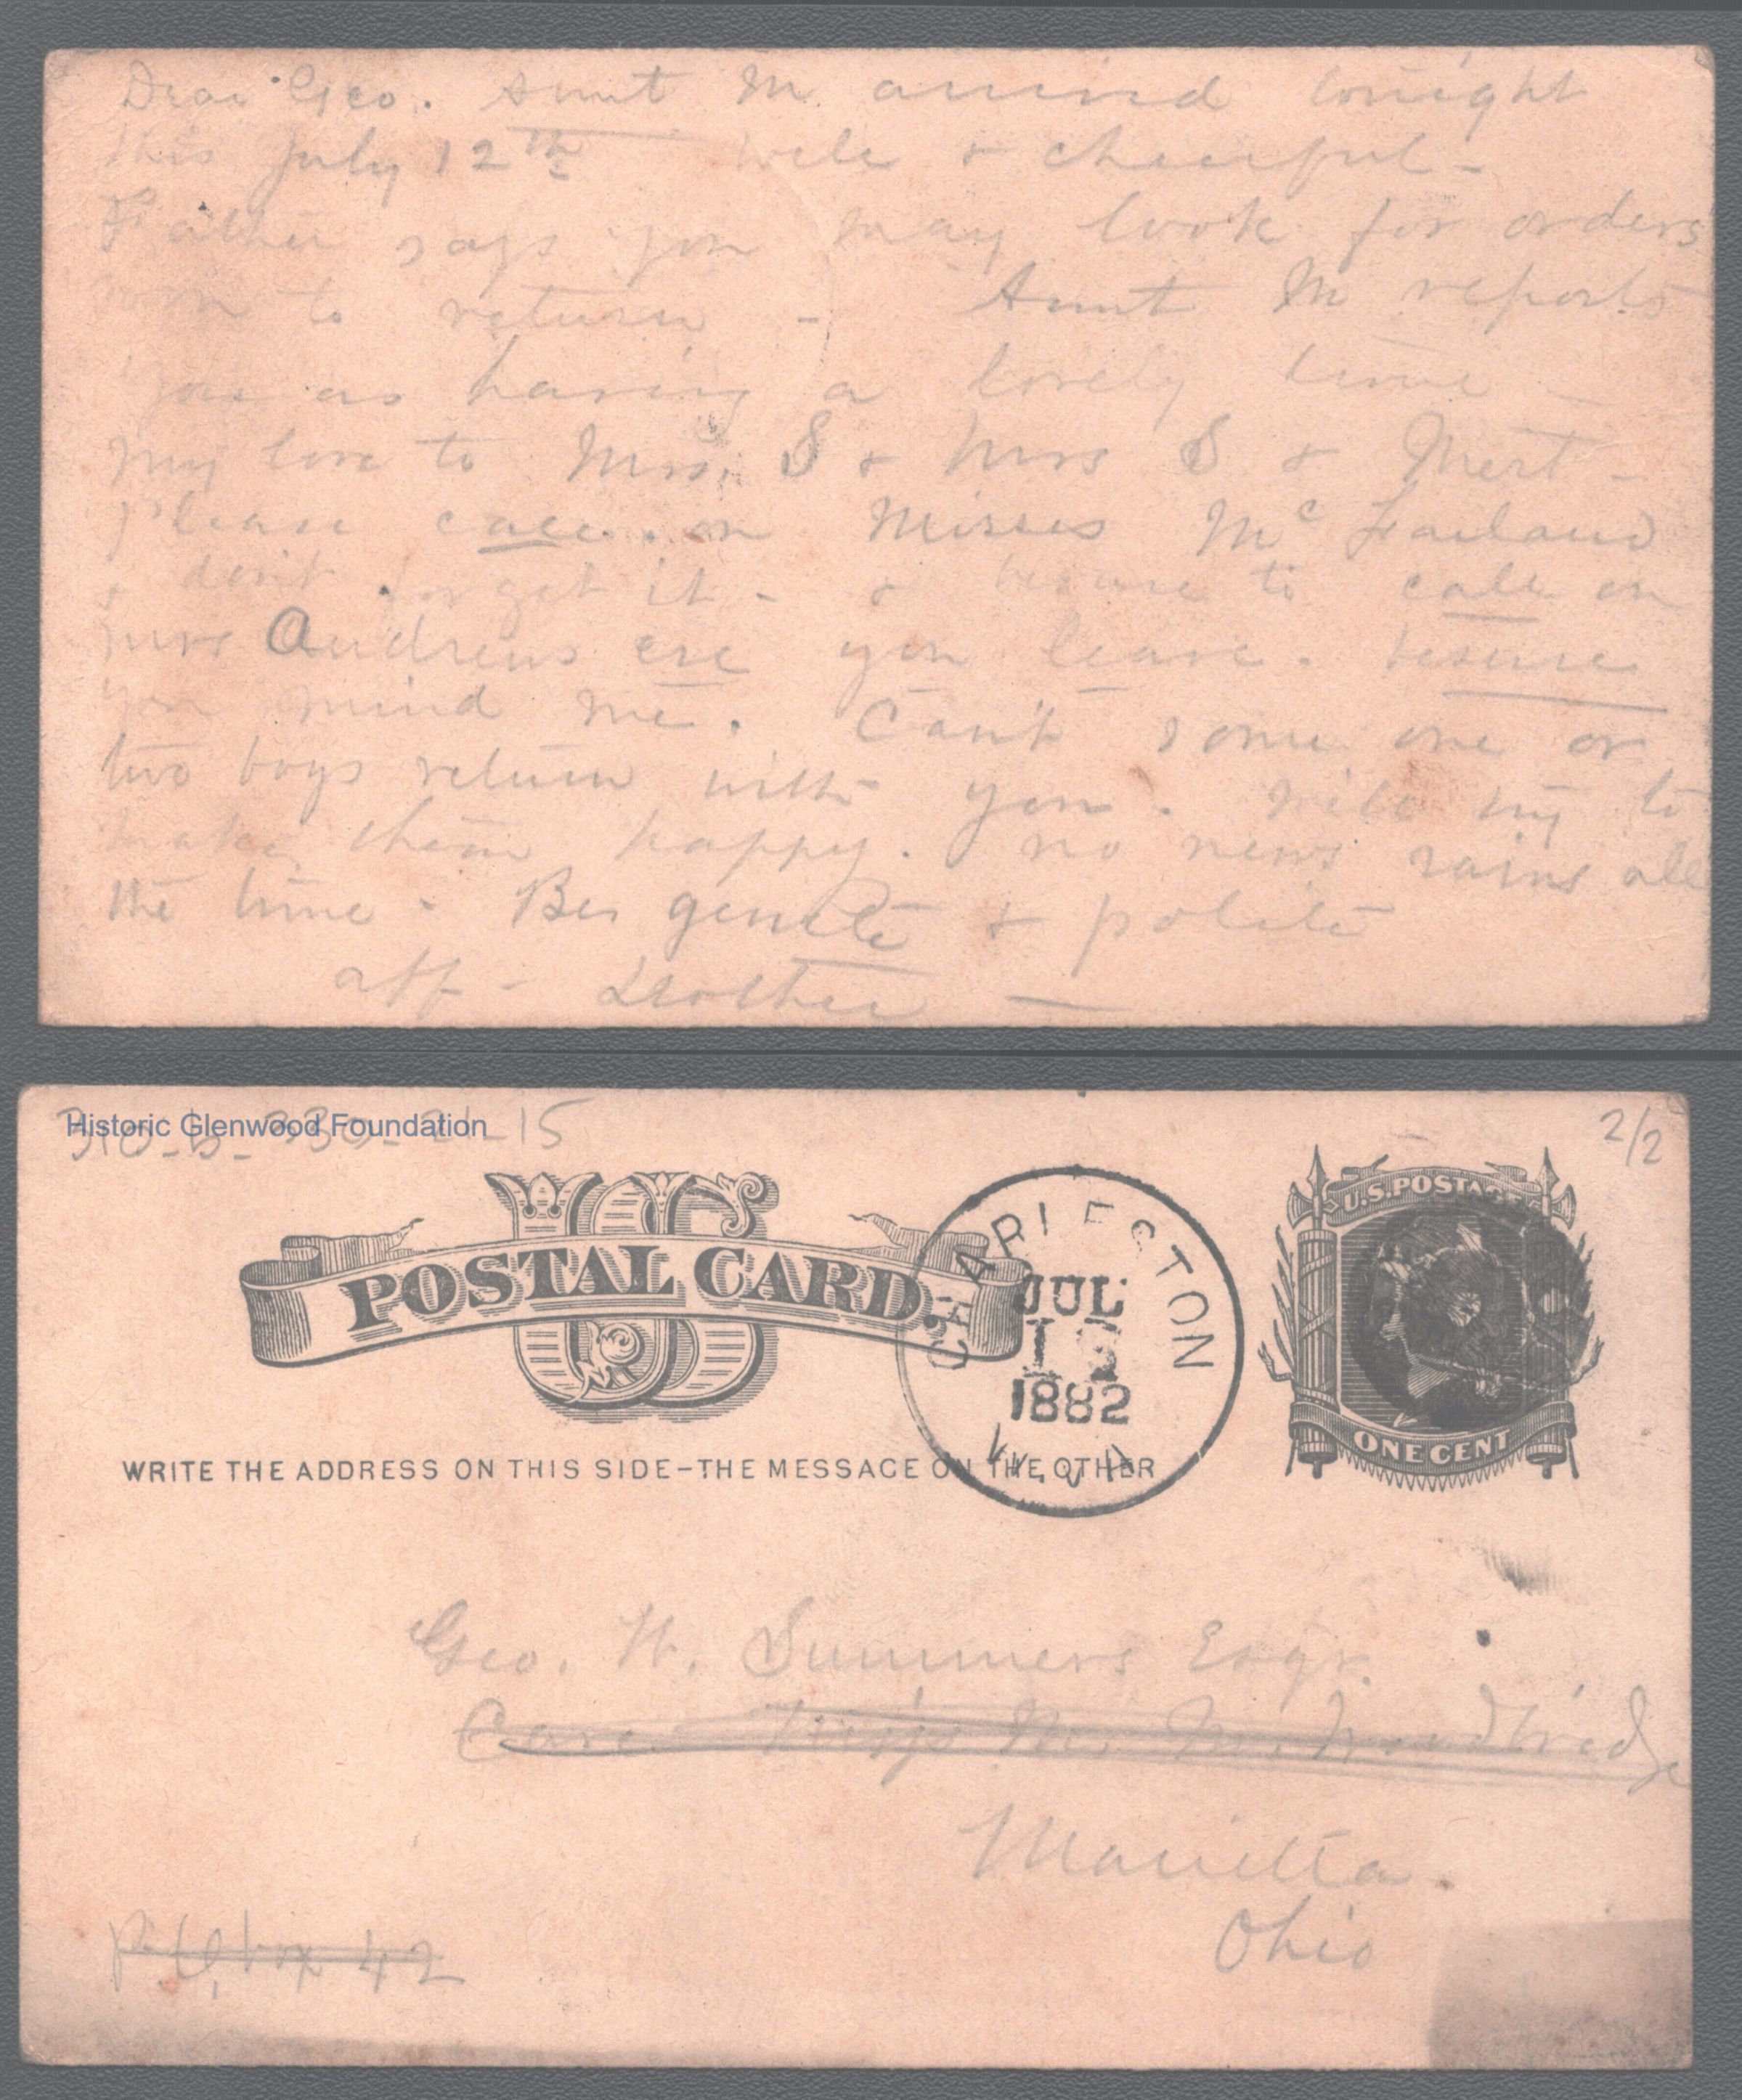 Dear Geo. Aunt M arrived tonight
this July 12th well & cheerful -
Father says you may look for orders
soon to return - Aunt M reports
you as having a lovely time -
My love to Mrs. S & Mrs S & Mert -
please call on Misses McFarland
& don't forget it - & besure to call on
Mrs Andrews ere you leave. besure
you mind me. Can't some one or
two boys return with you. Will try to
make them happy. no news rains all
the time - Be gentle & polite
aff - Mother -
Historic Glenwood Foundation
2/2
U.S. POSTAGE
US
POSTAL CARD.
CHARLESTON
JUL
1882
W. VA
ONE CENT
WRITE THE ADDRESS ON THIS SIDE-THE MESSAGE ON THE OTHER
Geo. W. Summers Esqr.
Care M. Woodbridge
Marietta.
Ohio
P. O. box 42